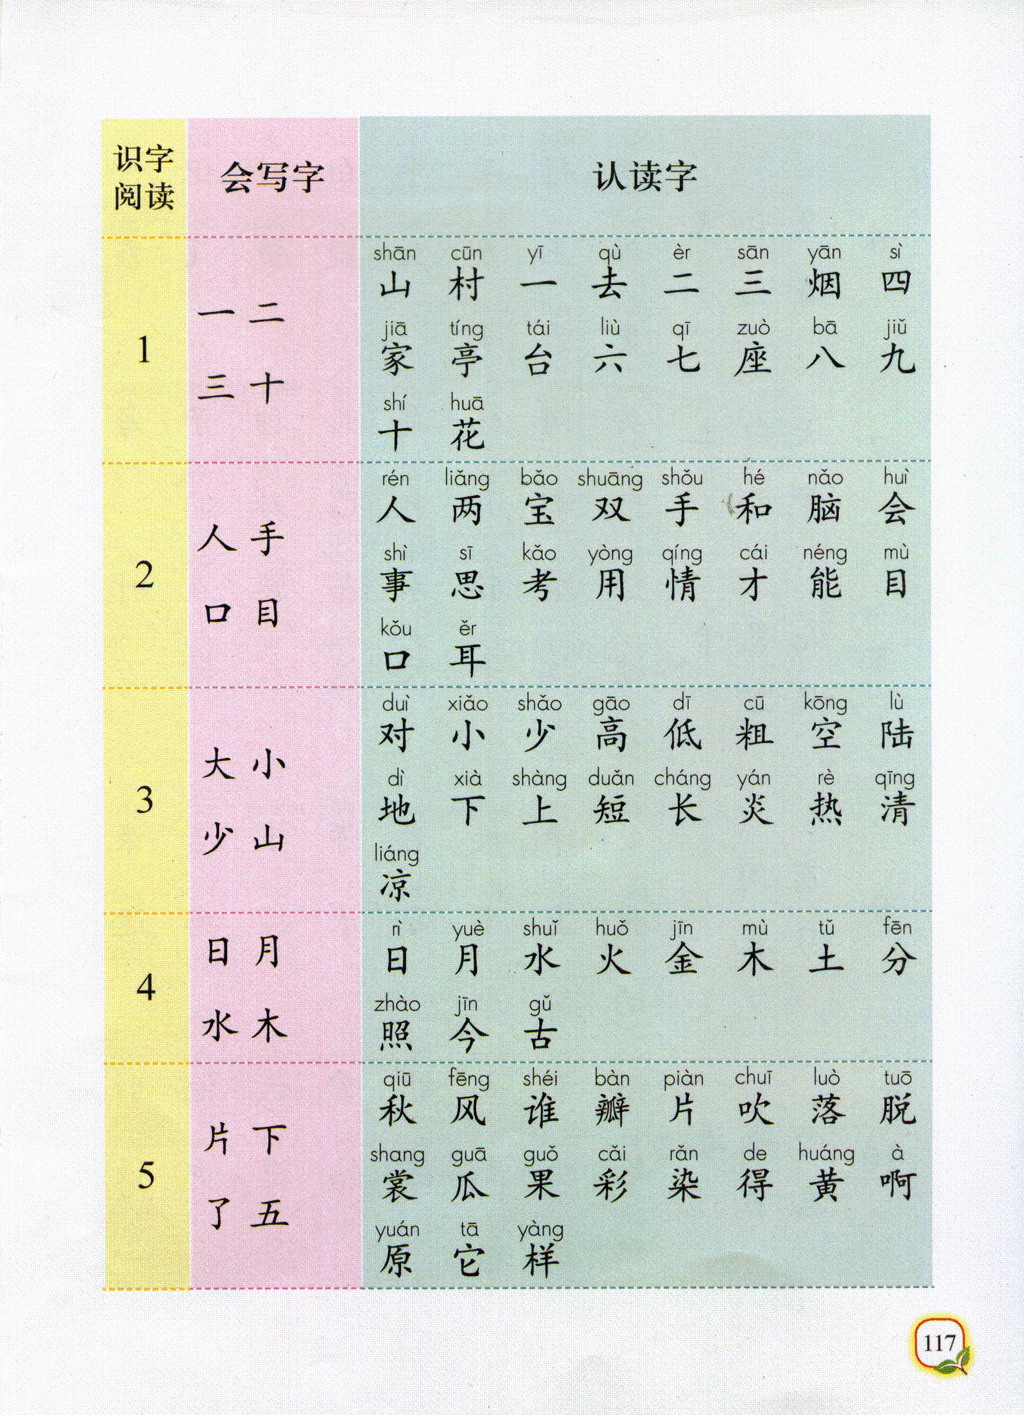 识字阅读 会写字 认读字
1
一 二
三 十
shān cūn yī qù èr sān yān sì
山 村 一 去 二 三 烟 四
jiā tíng tái liù qī zuò bā jiǔ
家 亭 台 六 七 座 八 九
shí huā
十 花
2
人 手
口 目
rén liǎng bǎo shuāng shǒu hé nǎo huì
人 两 宝 双 手 和 脑 会
shì sī kǎo yòng qíng cái néng mù
事 思 考 用 情 才 能 目
kǒu ěr
口 耳
3
大 小
少 山
duì xiǎo shǎo gāo dī cū kōng lù
对 小 少 高 低 粗 空 陆
dì xià shàng duǎn cháng yán rè qīng
地 下 上 短 长 炎 热 清
liáng
凉
4
日 月
水 木
rì yuè shuǐ huǒ jīn mù tǔ fēn
日 月 水 火 金 木 土 分
zhào jīn gǔ
照 今 古
5
片 下
了 五
qiū fēng shéi bàn piàn chuī luò tuō
秋 风 谁 瓣 片 吹 落 脱
shang guā guǒ cǎi rǎn de huáng à
裳 瓜 果 彩 染 得 黄 啊
yuán tā yàng
原 它 样
117